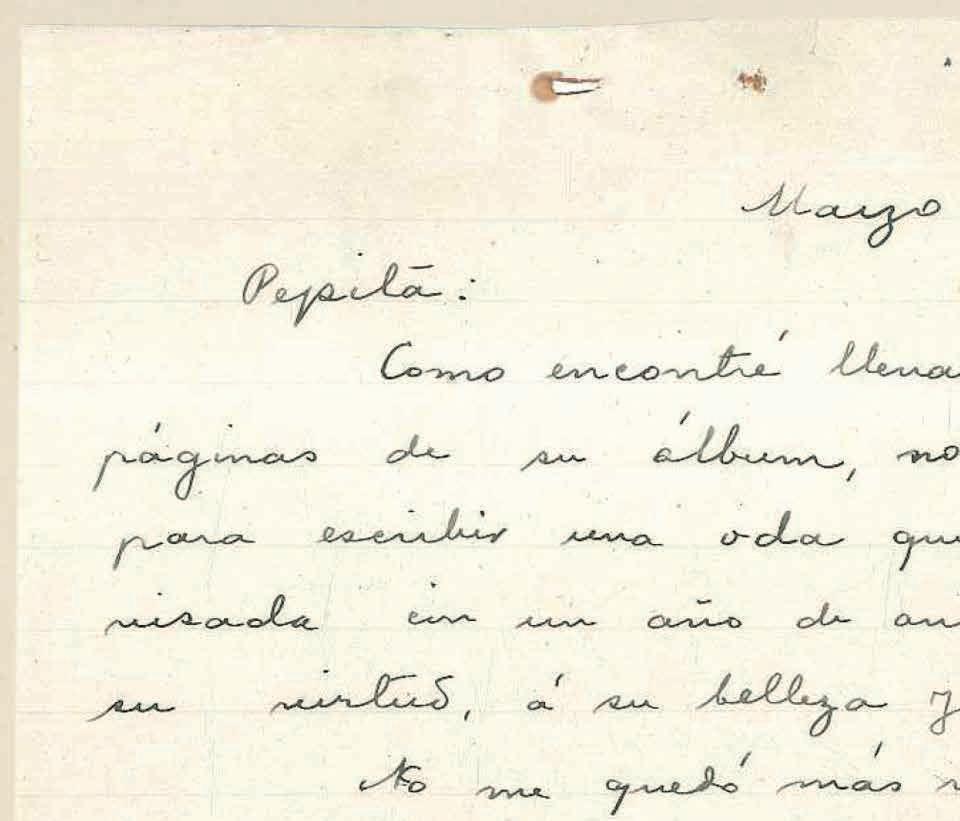 Marzo
Pepita:
Como encontré llena
páginas de su álbum, no
para escribir una oda que
visada en un año de an
su virtud, á su belleza y
No me quedó más